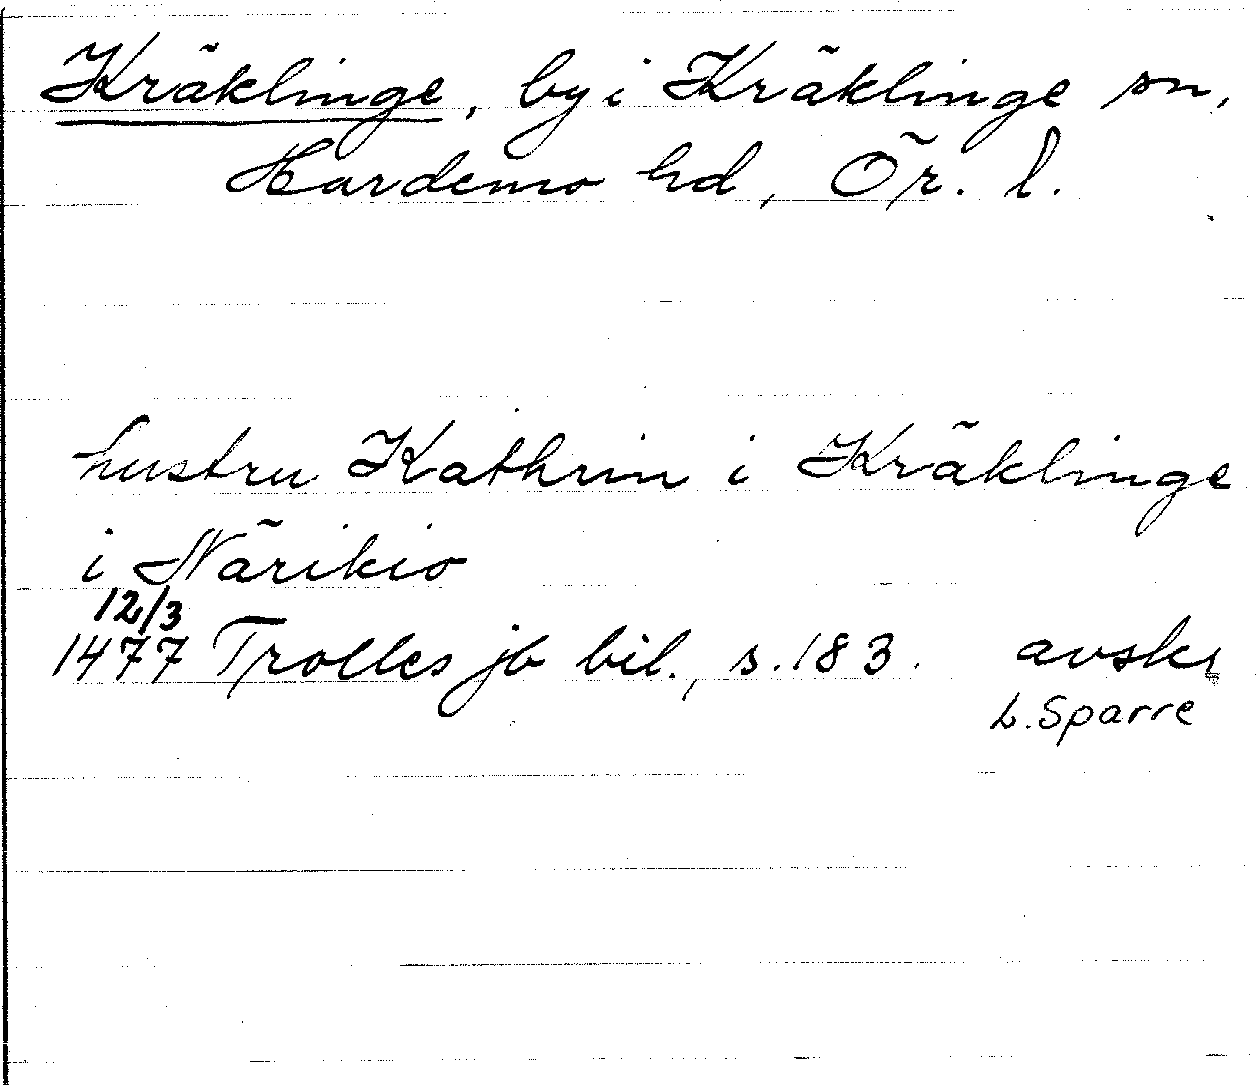 Kräklinge, by i Kräklinge sn,
Hardemo hd, Ör. l.
hustru Kathrin i Kräklinge
i Närikio
12/3
1477 Trolles jb bil., s. 183. avskr
L. Sparre